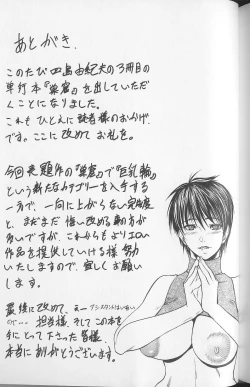 あとがき.
このたび四島由紀夫の3冊目の
単行本『単窟』を出していただ
くことになりました。
これもひとえに読者様のおかげ
です。ここに改めてお礼を。
今回表題作の『巣窟』で『巨乳輪』
という新たなカテゴリーを入手する
一方で、一向に上がらない完成度
と、まだまだ悔い改める事の方が
多いですが、これからもよりエロい
作品を提供していける様 努力
いたしますので、宜しくお願い
します。
最後に改めて、
アシスタントはいない
が…担当様、そしてこの本を
手にとって下さった皆様、
本当にありがとうございます。